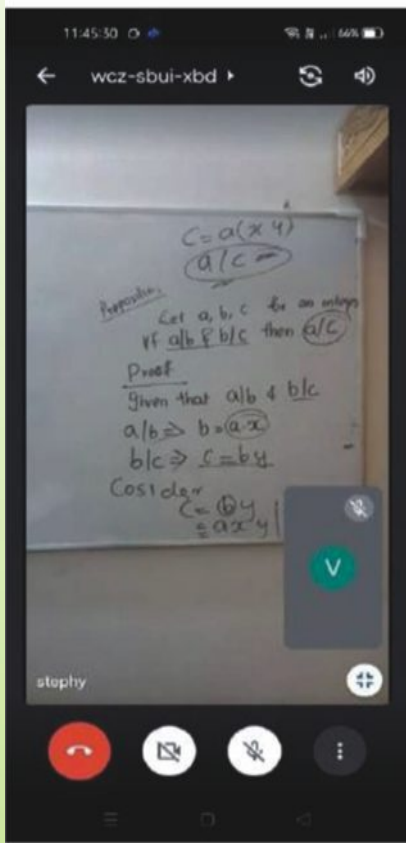 11:45:30
66%
wcz-sbui-xbd
C = a(x y)
a/c
Proposition
Let a, b, c be an integers
if a/b & b/c then a/c
Proof
given that a/b & b/c
a/b ⇒ b = a·x
b/c ⇒ c = by
Cosider
C = by
= axy
V
stephy